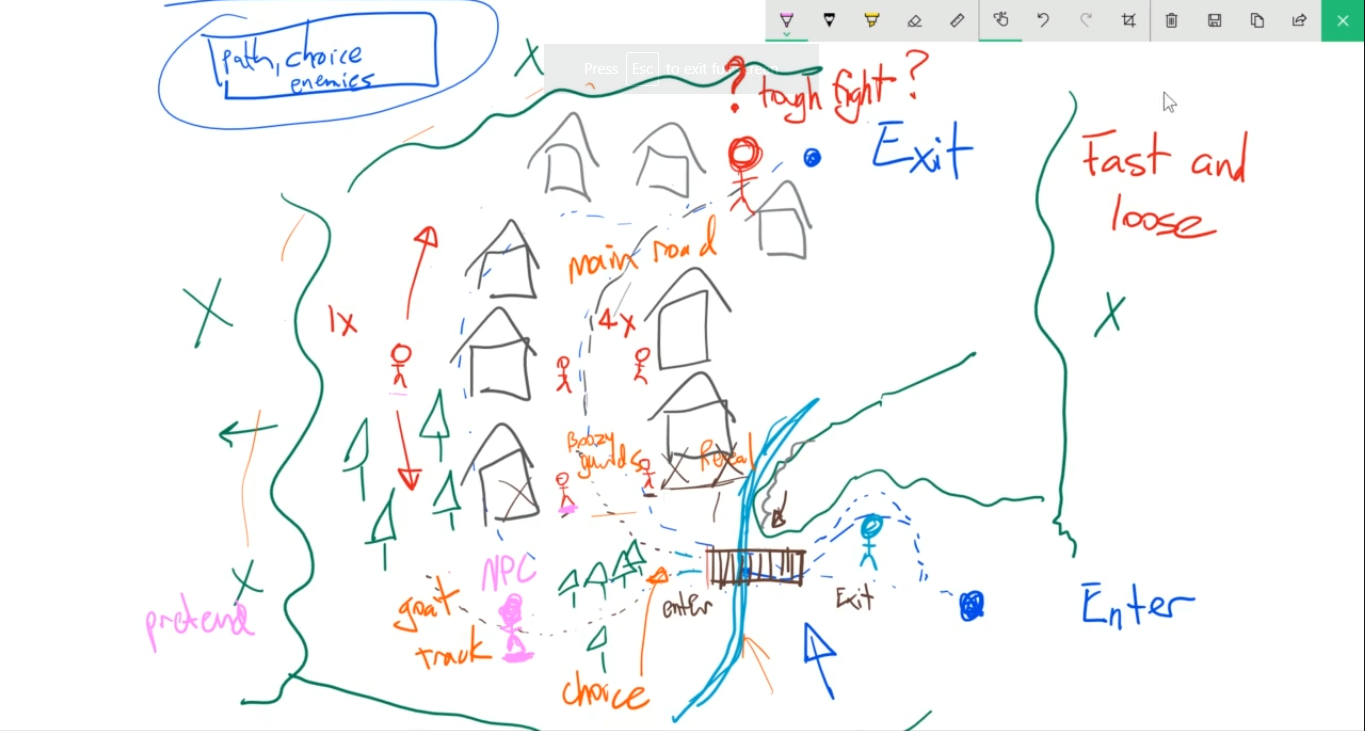 path, choice
enemies
Press Esc to exit full screen
? tough fight ?
Exit
Fast and
loose
main road
1x
4x
Boozy
guards
Reveal
NPC
goat
track
pretend
enter
Exit
Enter
choice